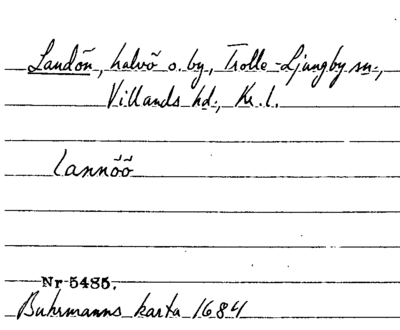 Landön, halvö o. by, Trolle-Ljungby sn.,
Villands hd., Kr. l.
Lannöö
Nr 5485.
Buhrmanns karta 1684